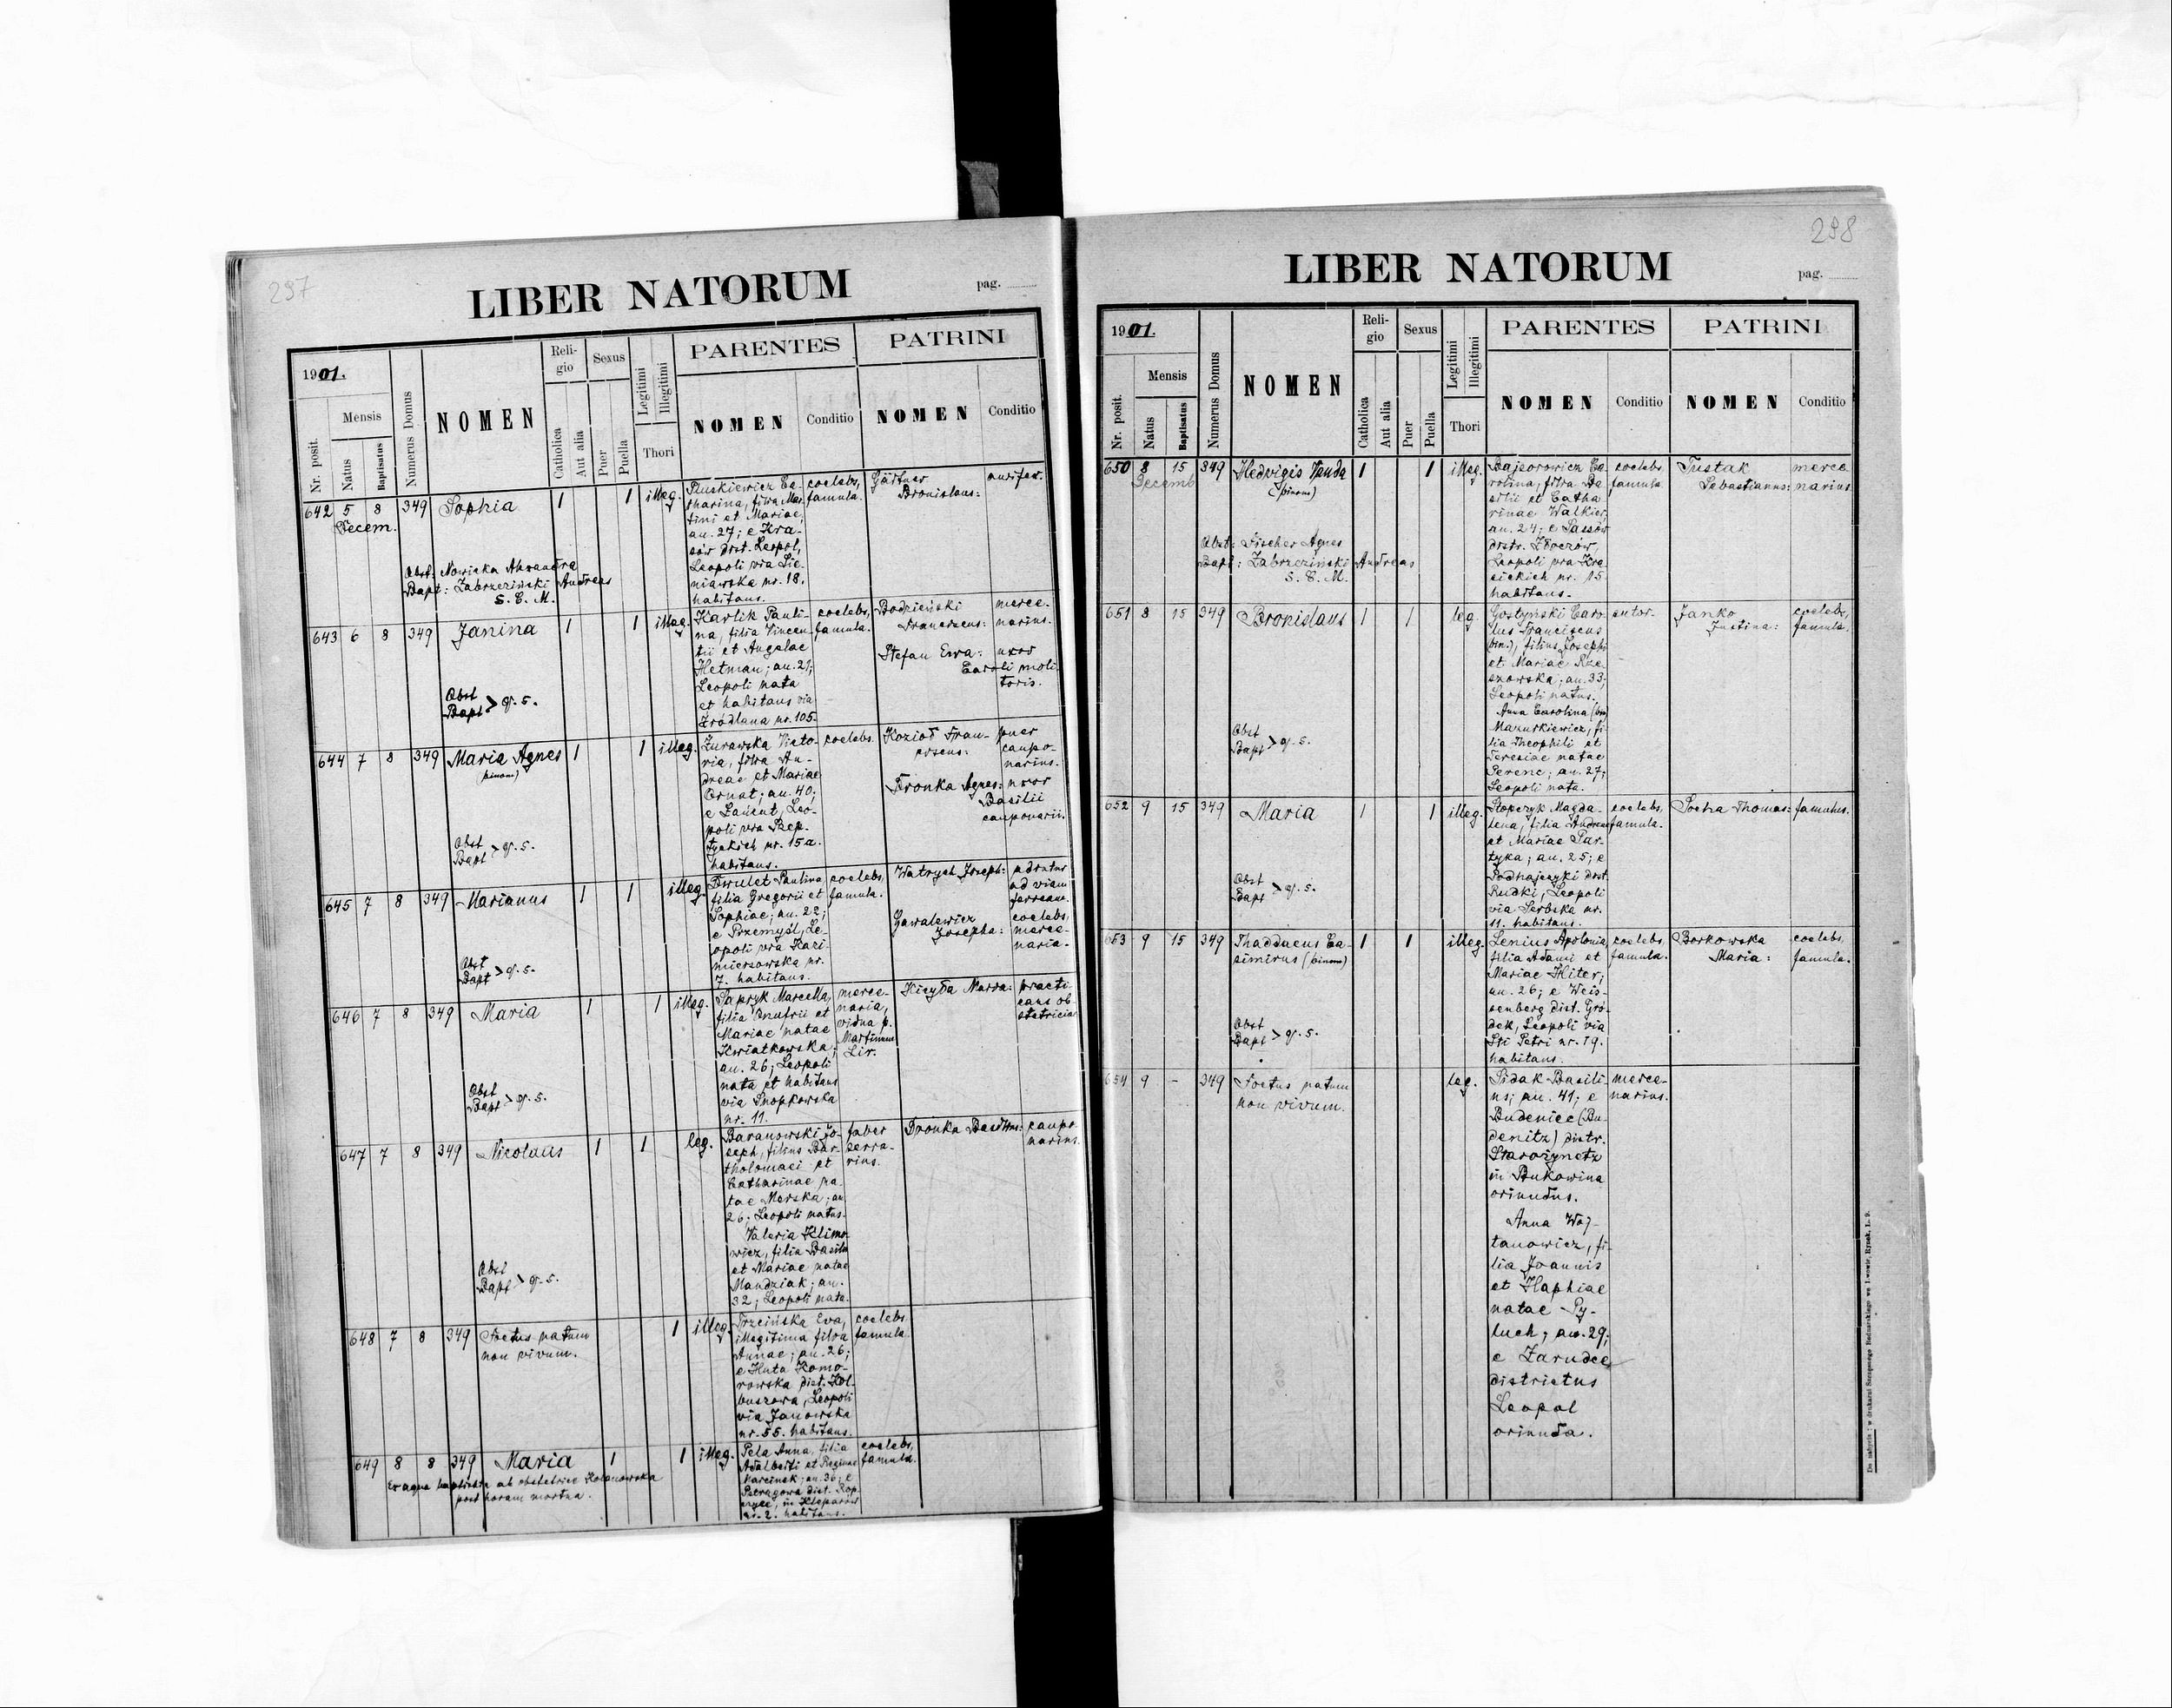 297
LIBER NATORUM
pag.
1901.
Nr. posit.
Mensis
Natus
Baptisatus
Numerus Domus
NOMEN
Religio
Catholica
Aut alia
Sexus
Puer
Puella
Legitimi
Illegitimi
Thori
PARENTES
NOMEN
Conditio
PATRINI
NOMEN
Conditio
642 5 8 349 Sophia 1 1 illeg.
Decem.
Obst: Nowicka
Bapt: Zabrzeziński Andreas
S. C. M.
Pluskiewicz Ca-
tharina, filia Mar-
tini et Mariae,
an. 27; e Kra-
sów dist. Leopol,
Leopoli via Sie-
niawska nr. 18.
habitans.
coelebs,
famula.
Gärtner
Bronislaus:
aurifex.
643 6 8 349 Janina 1 1 illeg.
Obst
Bapt > q. s.
Karlik Pauli-
na, filia Vincen-
tii et Angelae
Hetman; an. 21;
Leopoli nata
et habitans via
Źródlana nr. 105.
coelebs,
famula.
Bodzieński
Franciscus:
merce-
narius.
Stefan Ewa:
uxor
Caroli moli-
toris.
644 7 8 349 Maria Agnes 1 1 illeg.
(binom)
Obst
Bapt > q. s.
Żurawska Victo-
ria, filia An-
dreae et Mariae
Ornat; an. 40;
e Łańcut, Leo-
poli via Szep-
tyckich nr. 15a.
habitans.
coelebs.
Kozioł Fran-
ciscus:
puer
caupo-
narius.
Dronka Agnes:
uxor
Basilii
cauponarii.
645 7 8 349 Marianus 1 1 illeg.
Obst
Bapt > q. s.
Paulina
filia Gregorii et
Sophiae; an. 22;
e Przemyśl, Le-
opoli via Kazi-
mierzowska nr.
7. habitans.
coelebs,
famula.
Watrych Joseph:
ad viam
ferream.
Gawalewicz
Josepha:
coelebs,
merce-
naria.
646 7 8 349 Maria 1 1 illeg.
Obst
Bapt > q. s.
Sapryk Marcella,
filia Onufrii et
Mariae natae
Kwiatkowska;
an. 26; Leopoli
nata et habitans
via Snopkowska
nr. 11.
merce-
naria,
vidua p.
Martinum
Lir.
Kiczyła Maria:
practi-
cans ob-
stetricia.
647 7 8 349 Nicolaus 1 1 leg.
Obst
Bapt > q. s.
Baranowski Jo-
seph, filius Bar-
tholomaei et
Catharinae na-
tae Morska; an.
26; Leopoli natus.
Valeria Klimo-
wicz, filia Basilii
et Mariae natae
Mandziak; an.
32; Leopoli nata.
faber
serra-
rius.
Dronka Basilius:
caupo-
narius.
648 7 8 349 Foetus natum 1 illeg.
non vivum.
Trzcińska Eva,
illegitima filia
Annae; an. 26;
e Huta Komo-
rowska dist. Kol-
buszowa, Leopoli
via Janowska
nr. 55. habitans.
coelebs
famula.
649 8 8 349 Maria 1 1 illeg.
Ex aqua baptisata ab obstetrice Kohanowska
post horam mortua.
Pela Anna, filia
Adalberti et Reginae
Marciniak; an. 36; e
Pstrągowa dist. Rop-
czyce, in Kleparów
nr. 2. habitans.
coelebs,
famula.
298
LIBER NATORUM
pag.
1901.
Nr. posit.
Mensis
Natus
Baptisatus
Numerus Domus
NOMEN
Religio
Catholica
Aut alia
Sexus
Puer
Puella
Legitimi
Illegitimi
Thori
PARENTES
NOMEN
Conditio
PATRINI
NOMEN
Conditio
650 8 15 349 Hedvigis Vanda 1 1 illeg.
Decemb (binom)
Obst: Fischer Agnes
Bapt: Zabrzeziński Andreas
S. C. M.
Bajcorowicz Ca-
rolina, filia Ba-
silii et Catha-
rinae Walkier,
an. 24; e Sassów
distr. Złoczów,
Leopoli via Kra-
sickich nr. 15.
habitans.
coelebs,
famula.
Tustak
Sebastianus:
merce-
narius.
651 8 15 349 Bronislaus 1 1 leg.
Obst
Bapt > q. s.
Gostyński Caro-
lus Franciscus
(bin.), filius Josephi
et Mariae Rze-
szowska; an. 33;
Leopoli natus.
Anna Carolina (bin)
Mazurkiewicz, fi-
lia Theophili et
Teresiae natae
Ferenc; an. 27;
Leopoli nata.
sutor.
Janko
Justina:
coelebs,
famula.
652 9 15 349 Maria 1 1 illeg.
Obst
Bapt > q. s.
Stopczyk Magda-
lena, filia Andreae
et Mariae Par-
tyka; an. 25; e
Podhajczyki dist.
Rudki, Leopoli
via Serbska nr.
11. habitans.
coelebs,
famula.
Socha Thomas: famulus.
653 9 15 349 Thaddaeus Ca- 1 1 illeg.
simirus (binom)
Obst
Bapt > q. s.
Lenius Apolonia,
filia Adami et
Mariae Hiter;
an. 26; e Weis-
senberg dist. Gró-
dek, Leopoli via
Sti Petri nr. 19.
habitans.
coelebs,
famula.
Borkowska
Maria:
coelebs,
famula.
654 9 - 349 Foetus natum leg.
non vivum.
Sidak Basili-
us; an. 41; e
Budeniec (Bu-
denitz) distr.
Starożynetz
in Bukowina
oriundus.
Anna Woj-
tanowicz, fi-
lia Joannis
et Haphiae
natae Py-
luch; an. 29;
e Zarudce
districtus
Leopol
oriunda.
merce-
narius.
De nabycia : w drukarni Szczęsnego Bednarskiego we Lwowie, Rynek, L. 9.